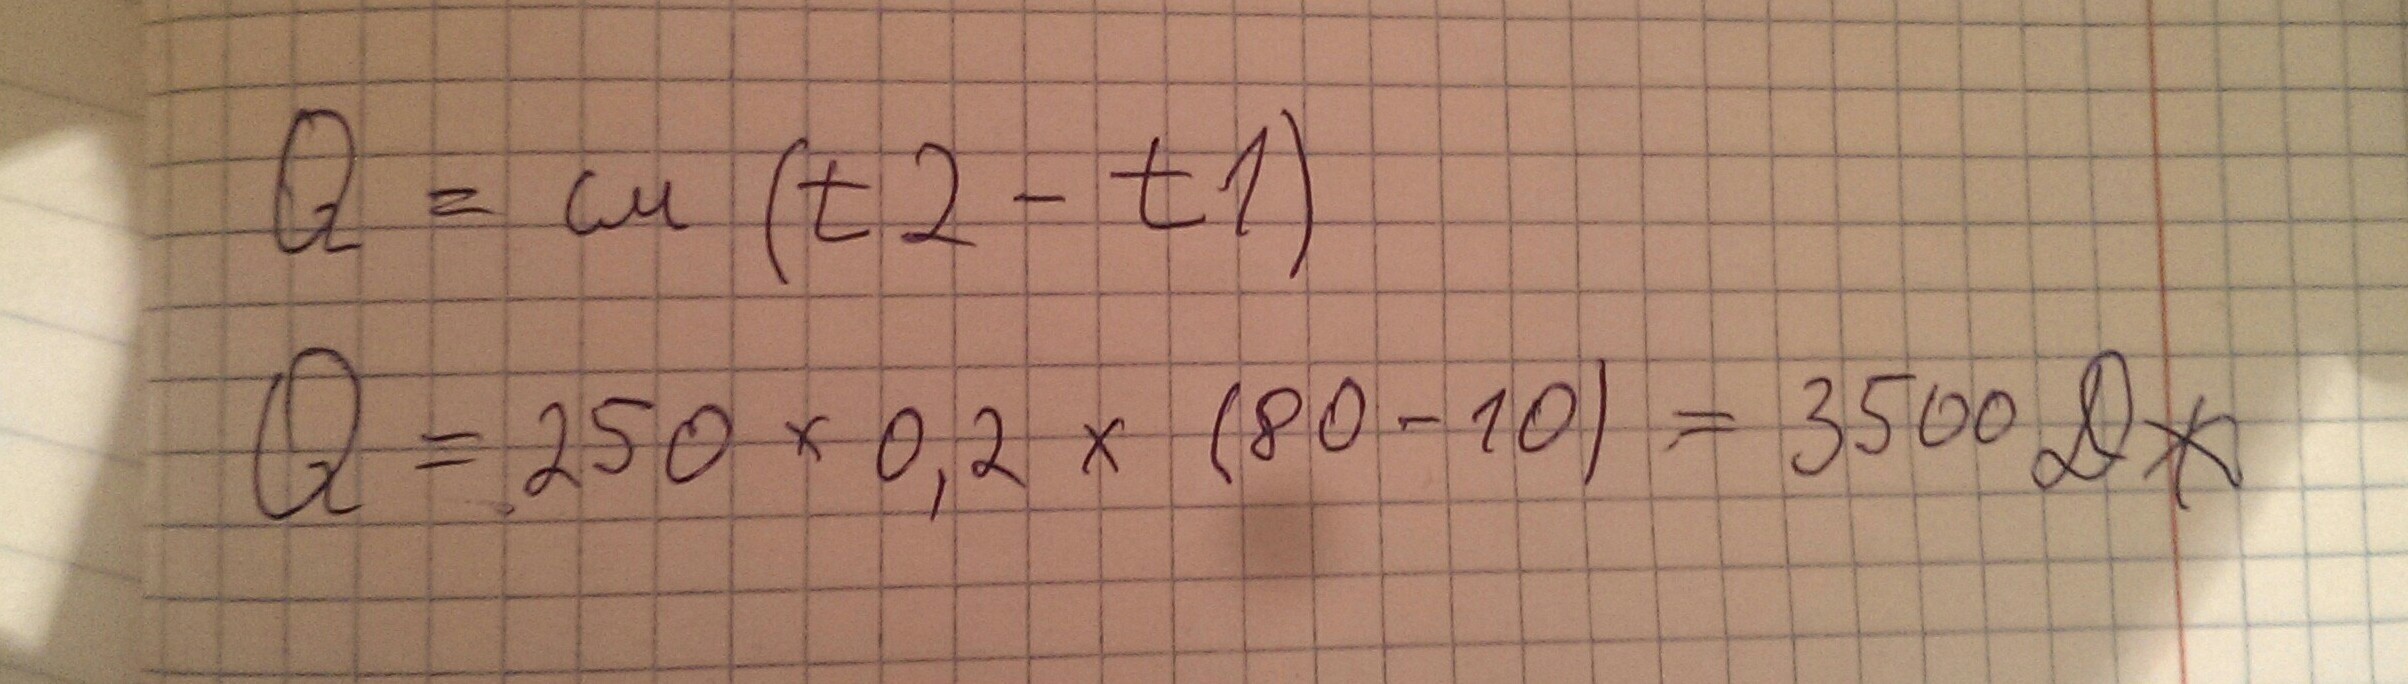 Q = cм (t2 - t1)
Q = 250 × 0,2 × (80 - 10) = 3500 Дж